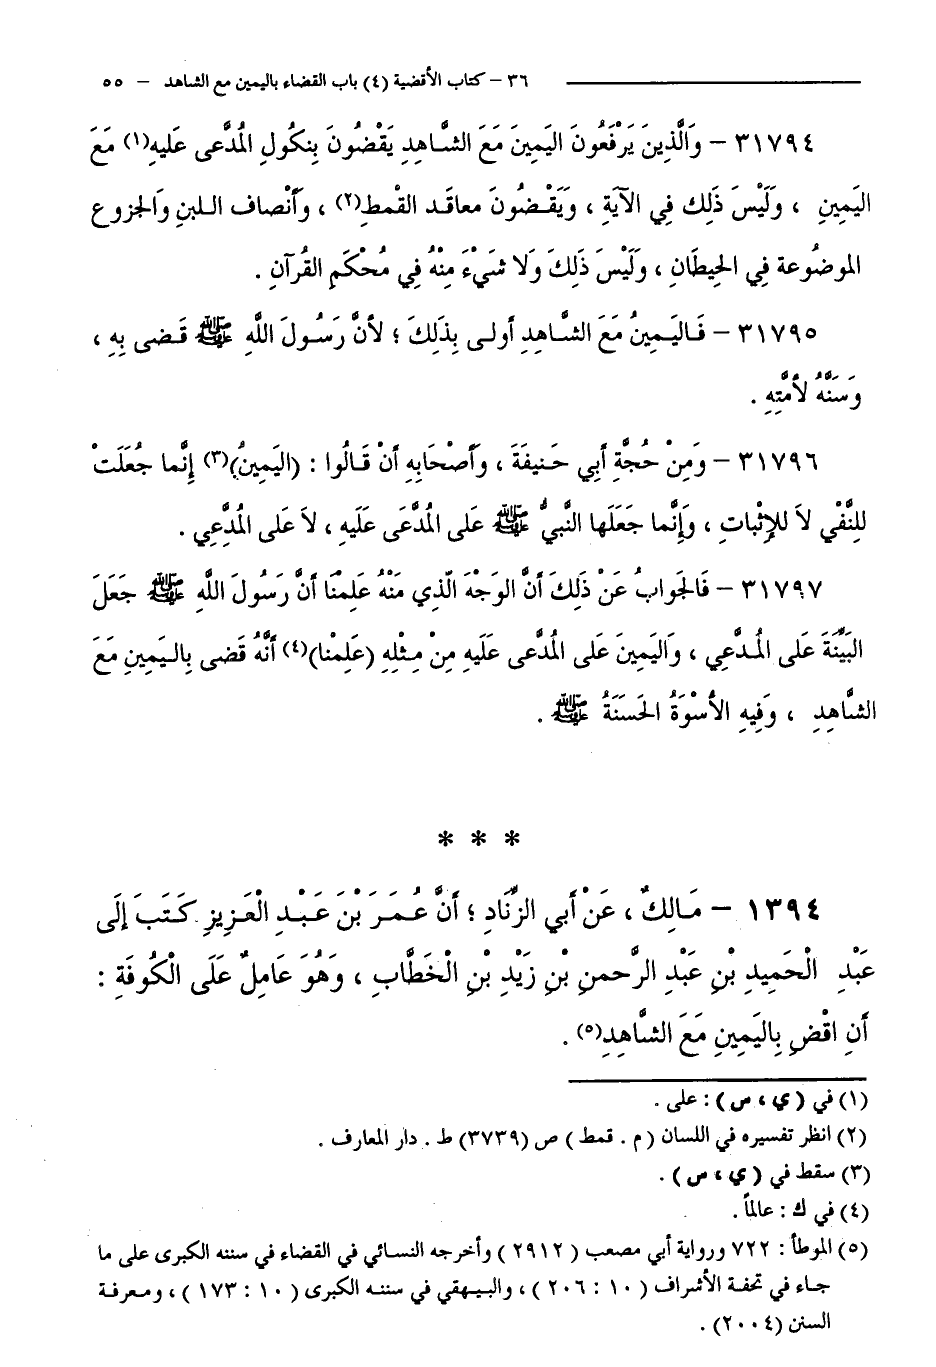 ٣٦ – كتاب الأقضية (٤) باب القضاء باليمين مع الشاهد – ٥٥
٣١٧٩٤ – وَالَّذِينَ يَرْفَعُونَ اليَمِينَ مَعَ الشَّاهِدِ يَقْضُونَ بِنكُولِ المُدَّعى عَليهِ(١) مَعَ
اليَمِينِ ، وَلَيْسَ ذَلِك فِي الآيَةِ ، وَيَقْضُونَ معاقد القْمط(٢) ، وأنْصاف اللبنِ والجزوع
الموضُوعة فِي الحِيطَانِ ، وَلَيْسَ ذَلِكَ وَلا شَيْءَ مِنْهُ فِي مُحْكَمِ القُرآنِ .
٣١٧٩٥ – فَاليَمِينُ مَعَ الشَّاهِدِ أولى بِذَلِكَ ؛ لأنَّ رَسُولَ اللَّهِ ﷺ قَضى بِهِ ،
وَسَنَّهُ لأمَّتِهِ .
٣١٧٩٦ – وَمِنْ حُجَّةِ أبِي حَنيفَةَ ، وَأصْحَابِهِ أنْ قَالُوا : (اليَمِينُ)(٣) إنَّما جُعَلَتْ
للِنَّفْي لاَ للإِثْباتِ ، وَإنَّما جَعَلَها النَّبيُّ ﷺ عَلى المُدَّعَى عَلَيهِ ، لاَ عَلى المُدَّعِي .
٣١٧٩٧ – فَالجَوابُ عَنْ ذَلِكَ أنَّ الوَجْهَ الّذِي مَنْهُ عَلِمْنَا أنَّ رَسُولَ اللَّهِ ﷺ جَعَلَ
البَيَّنَةَ عَلى المُدَّعِي ، وَاليَمِينَ عَلى المُدَّعى عَلَيهِ مِنْ مِثْلِهِ (عَلِمْنا)(٤) أنَّهُ قَضى بِاليَمِينِ مَعَ
الشَّاهِدِ ، وَفِيهِ الأسْوَةُ الحَسَنَةُ ﷺ .
* * *
١٣٩٤ – مَالِكٌ ، عَنْ أبي الزِّنَادِ ؛ أنَّ عُمَرَ بْنَ عَبْدِ الْعَزِيزِ كَتَبَ إلَى
عَبْدِ الْحَمِيدِ بْنِ عَبْدِ الرَّحمنِ بْنِ زَيْدِ بْنِ الْخَطَّابِ ، وَهُوَ عَامِلٌ عَلَى الْكُوفَةِ :
أنِ اقْضِ بِاليَمِينِ مَعَ الشَّاهِدِ(٥) .
(١) في (ي ، س) : على .
(٢) انظر تفسيره في اللسان (م . قمط) ص (٣٧٣٩) ط . دار المعارف .
(٣) سقط في (ي ، س) .
(٤) في ك : عالماً .
(٥) الموطأ : ٧٢٢ ورواية أبي مصعب (٢٩١٢) وأخرجه النسائي في القضاء في سننه الكبرى على ما
جاء في تحفة الأشراف (١٠ : ٢٠٦) ، والبيهقي في سننه الكبرى (١٠ : ١٧٣) ، ومعرفة
السنن (٢٠٠٤) .